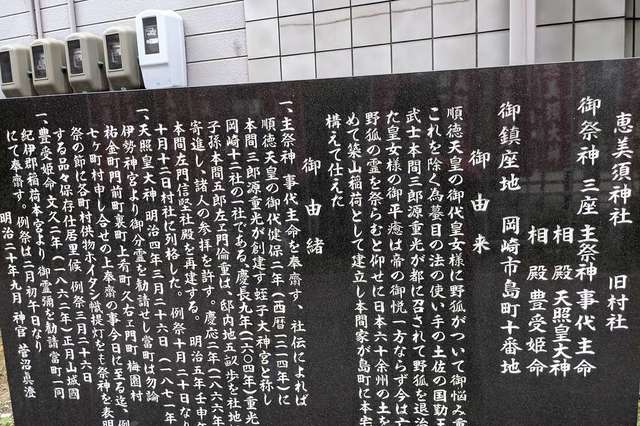 恵美須神社 旧村社
御祭神 三座 主祭神 事代主命
相殿 天照皇大神
相殿 豊受姫命
御鎮座地 岡崎市島町十番地
御由来
順徳天皇の御代皇女様に野狐がついて御悩み重
これを除く為蟇目の法の使い手の土佐の国勤王
武士本間三郎源重光が都に召されて野狐を退治
た皇女様の御平癒は帝の御悦一方ならず今は亡
野狐の霊を祭らむと仰せに日本六十余州の土を
めて築山稲荷として建立し本間家が島町に本宅
構えて仕えた
御由緒
一、主祭神 事代主命を奉斎す、社伝によれば
順徳天皇の御代健保二年(西暦一二一四年)に
本間三郎源重光が創建す 蛭子大神宮と称し
岡崎十二社の一社である。慶長九年(一六〇四年)重光
子孫本間五郎左ェ門倫重は、邸内地五二畝歩を社地
寄進し、諸人の参拝を許す。慶応二年(一八六六年
本間左門信堅社殿を再建する。 明治五年壬申年
十月十二日村社に列格した。例祭十月二十日なり
一、天照皇大神 明治四年三月二十六日(一八七一年
伊勢神宮より御分霊を勧請せし当町は勿論
祐金町門前町裏町上肴町久右ェ門町梅園村
七ヶ町村申し合せの上奉斎の事今日に至る迄、例
祭の節に各町村供物ホイタン幟提灯をも祭神を表明
する品々保存仕居里候 例祭三月二十六日
一、豊受姫命 文久二年(一八六二年)正月山城国
紀伊郡稲荷本宮より御霊彌を勧請当町一同
にて奉斎す。例祭は二月初午日なり
明治二十年九月 神官 菅沼真澄